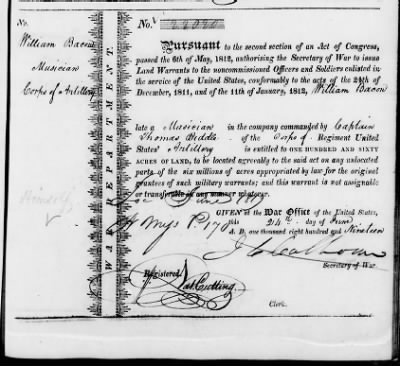 No.
William Bacon
Musician
Corps of Artillery
Himself
WAR DEPARTMENT.
No.
Pursuant to the second section of an Act of Congress,
passed the 6th of May, 1812, authorising the Secretary of War to issue
Land Warrants to the noncommissioned Officers and Soldiers enlisted in
the service of the United States, conformably to the acts of the 24th
of December, 1811, and of the 11th of January, 1812, William Bacon
late a Musician in the company commanded by Captain
Thomas Biddle of the Corps of Regiment United
States' Artillery is entitled to ONE HUNDRED AND SIXTY
ACRES OF LAND, to be located agreeably to the said act on any unlocated
parts of the six millions of acres appropriated by law for the original
grantees of such military warrants; and this warrant is not assignable
or transferable in any manner whatever.
June 1819
GIVEN at the War Office of the United States,
this 24th day of June
A. D. one thousand eight hundred and Nineteen
J C Calhoun
Secretary of War.
Registered
Cutting
Clerk.